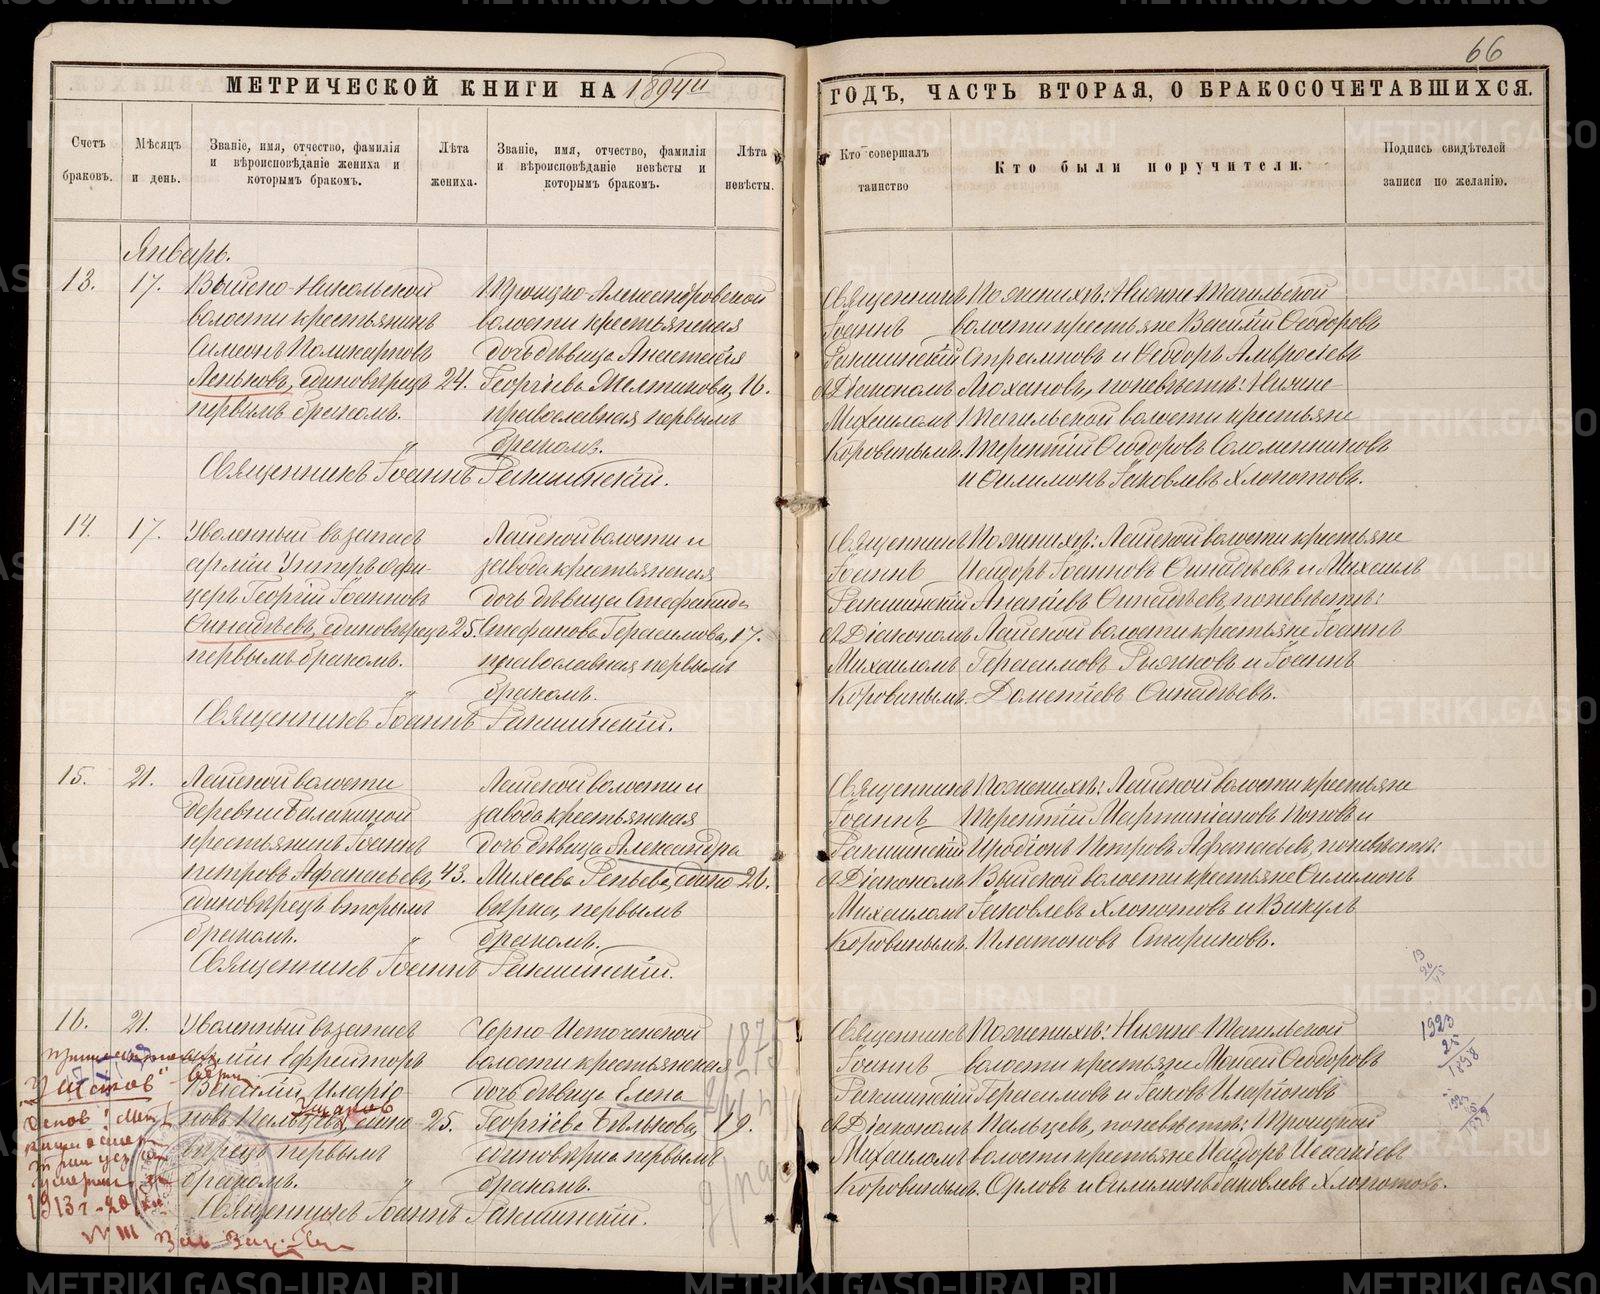 66
МЕТРИЧЕСКОЙ КНИГИ НА 1894й
ГОДЪ, ЧАСТЬ ВТОРАЯ, О БРАКОСОЧЕТАВШИХСЯ.
Счетъ браковъ.
Мѣсяцъ и день.
Званіе, имя, отчество, фамилія
и вѣроисповѣданіе жениха и
которымъ бракомъ.
Лѣта жениха.
Званіе, имя, отчество, фамилія
и вѣроисповѣданіе невѣсты и
которымъ бракомъ.
Лѣта невѣсты.
Кто совершалъ
таинство
Кто были поручители.
Подпись свидѣтелей
записи по желанію.
Январь.
13. 17.
Выйско-Никольской
волости крестьянинъ
Симеонъ Поликарповъ
Леньковъ, единовѣрецъ 24.
первымъ бракомъ.
Троицко-Александровской
волости крестьянская
дочь дѣвица Анастасія
Георгіева Желтикова, 16.
православная первымъ
бракомъ.
Священникъ Іоаннъ Ракшинскій.
Священникъ
Іоаннъ
Ракшинскій
съ Діакономъ
Михаиломъ
Коровинымъ.
По женихѣ: Нижне-Тагильской
волости крестьяне Василій Ѳеодоровъ
и Ѳеодоръ Амвросіевъ
по невѣстѣ: Нижне-
Тагильской волости крестьяне
Терентій Ѳеодоровъ Соломенниковъ
и Филимонъ Іаковлевъ Хлопотовъ.
14. 17.
Уволенный въ запасъ
арміи Унтеръ Офи-
церъ Георгій Іоанновъ
единовѣрецъ 25.
первымъ бракомъ.
Лайской волости и
завода крестьянская
дочь дѣвица Стефанида
Стефанова Герасимова, 17.
православная первымъ
бракомъ.
Священникъ Іоаннъ Ракшинскій.
Священникъ
Іоаннъ
Ракшинскій
съ Діакономъ
Михаиломъ
Коровинымъ.
По женихѣ: Лайской волости крестьяне
Исидоръ Іоанновъ и Михаилъ
по невѣстѣ:
Лайской волости крестьяне Іоаннъ
Герасимовъ и Іоаннъ
Дометіевъ
15. 21.
Лайской волости
деревни Балакиной
крестьянинъ Іоаннъ
Петровъ Афанасьевъ, 43.
единовѣрецъ вторымъ
бракомъ.
Лайской волости и
завода крестьянская
дочь дѣвица Александра
Михеева Репьева, едино- 26.
вѣрка, первымъ
бракомъ.
Священникъ Іоаннъ Ракшинскій.
Священникъ
Іоаннъ
Ракшинскій
съ Діакономъ
Михаиломъ
Коровинымъ.
По женихѣ: Лайской волости крестьяне
Терентій Мартиніановъ Поповъ и
Иродіонъ Петровъ Афанасьевъ, по невѣстѣ:
Выйской волости крестьяне Филимонъ
Іаковлевъ Хлопотовъ и Викулъ
Платоновъ Стариковъ.
16. 21.
Уволенный въ запасъ
арміи Ефрейторъ
Василій Иларіо-
новъ Пальцевъ, едино- 25.
вѣрецъ первымъ
бракомъ.
Черно-Источенской
волости крестьянская
дочь дѣвица Елена
Георгіева Бѣлькова, 19.
единовѣрка первымъ
бракомъ.
Священникъ Іоаннъ Ракшинскій.
1875
Священникъ
Іоаннъ
Ракшинскій
съ Діакономъ
Михаиломъ
Коровинымъ.
По женихѣ: Нижне-Тагильской
волости крестьяне Моисей Ѳеодоровъ
Герасимовъ и Іаковъ Иларіоновъ
Пальцевъ, по невѣстѣ: Троицкой
волости крестьяне Исидоръ Исаакіевъ
Орловъ и Филимонъ Іаковлевъ Хлопотовъ.
1923
25
1898
METRIKI.GASO-URAL.RU